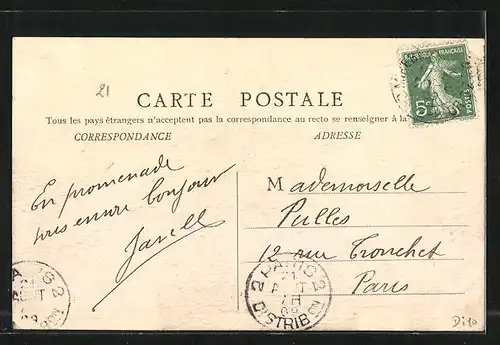 21
CARTE POSTALE
Tous les pays étrangers n'acceptent pas la correspondance au recto se renseigner à la
CORRESPONDANCE
ADRESSE
RÉPUBLIQUE FRANÇAISE
5c
POSTES
En promenade
vous envoie bonjour
Javelle
Mademoiselle
Pulles
12 rue Tronchet
Paris
PARIS 2
DISTRIB
09
Di10